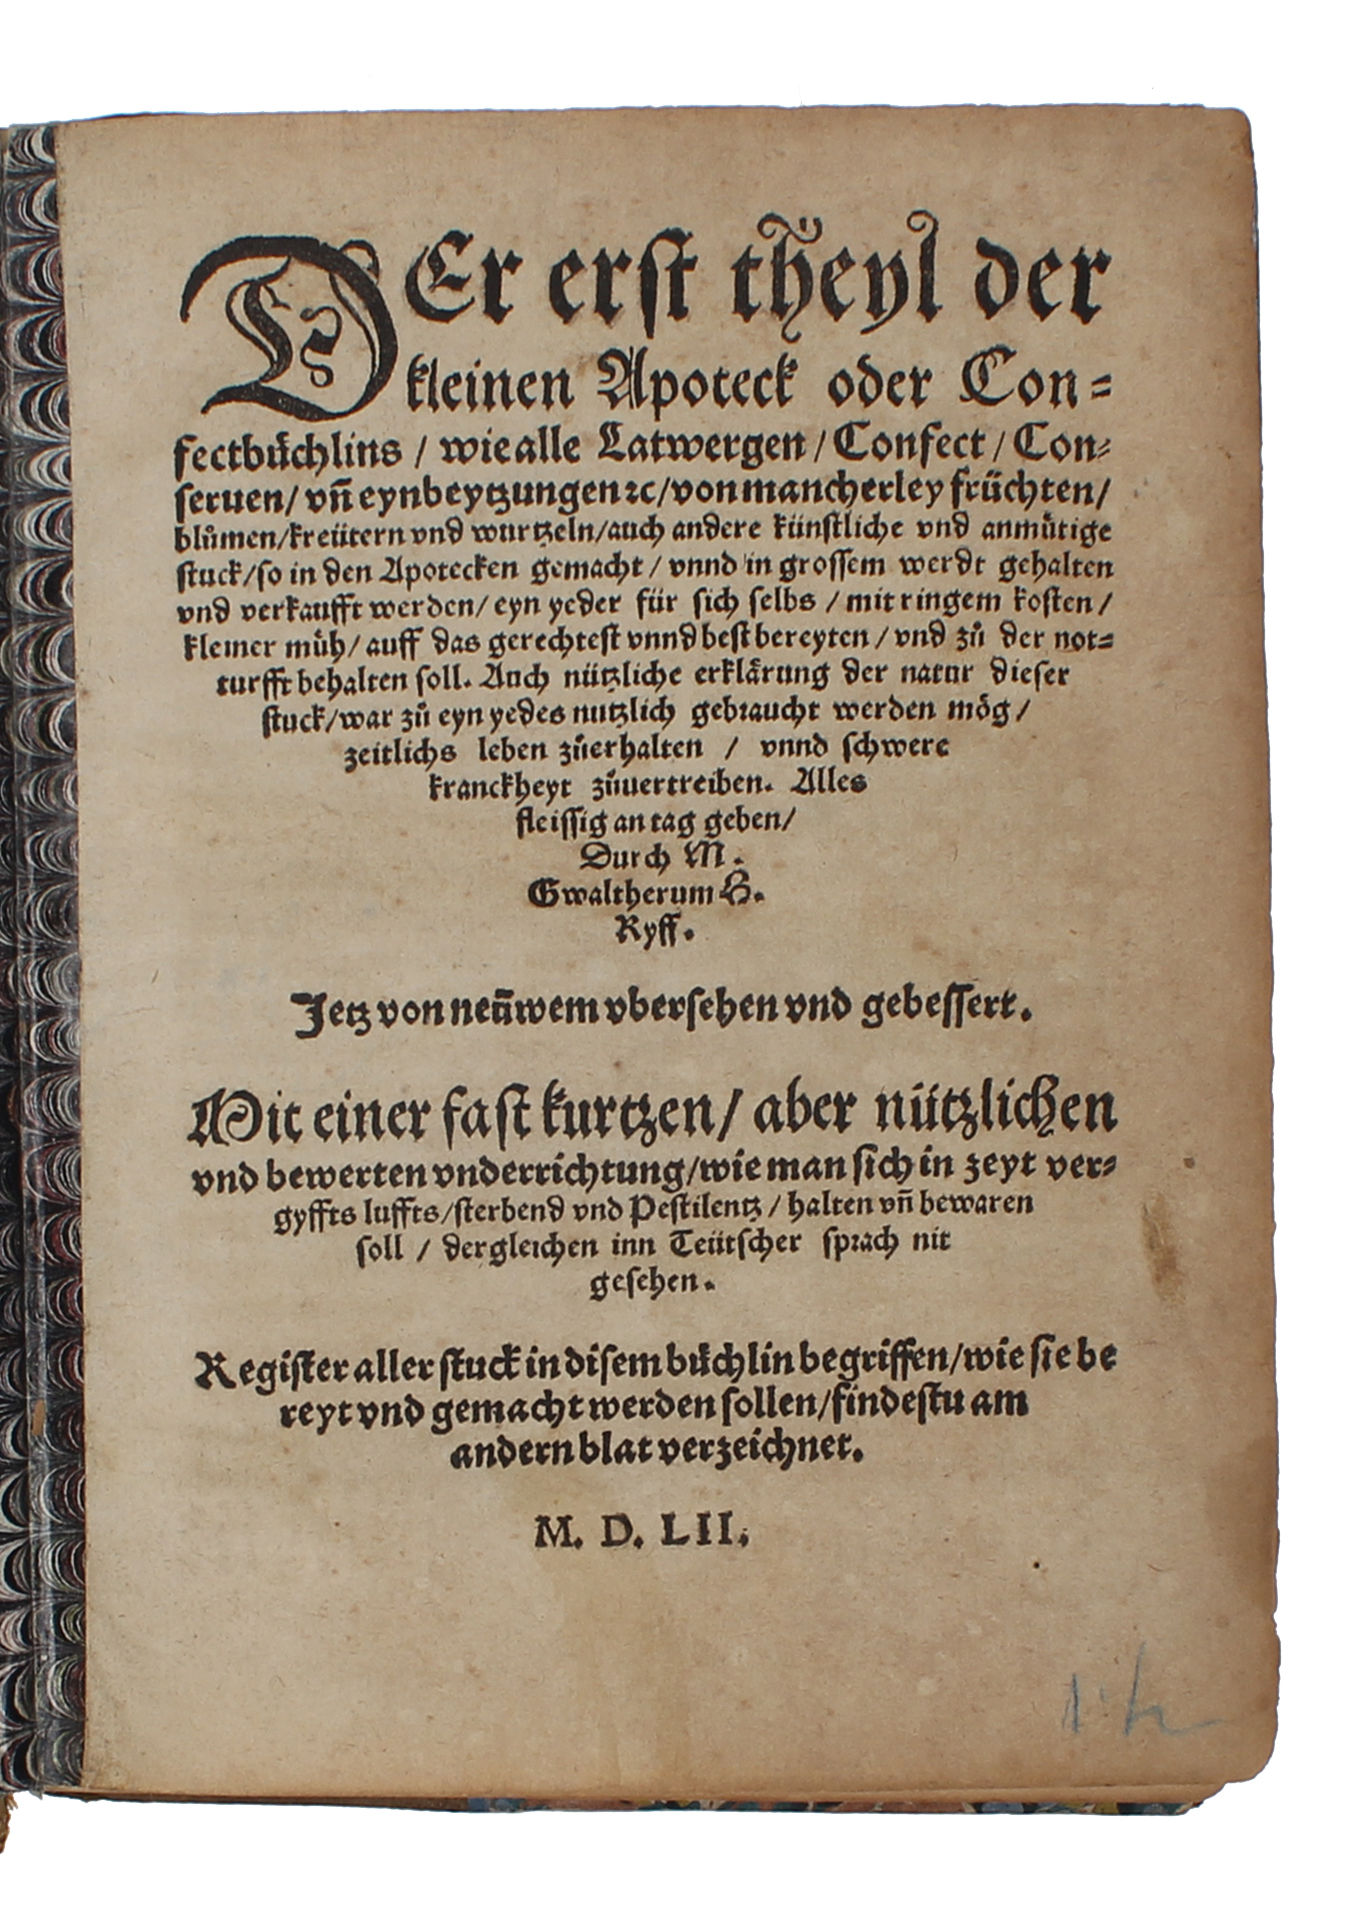 DEr erst theyl der
kleinen Apoteck oder Con=
fectbuͤchlins / wie alle Latwergen / Confect / Con=
seruen / vñ eynbeytzungen ꝛc / von mancherley früchten /
bluͦmen / kreütern vnd wurtzeln / auch andere künstliche vnd anmuͤtige
stuck / so in den Apotecken gemacht / vnnd in grossem werdt gehalten
vnd verkaufft werden / eyn yeder für sich selbs / mit ringem kosten /
kleiner muͤh / auff das gerechtest vnnd best bereyten / vnd zuͦ der not=
turfft behalten soll. Auch nützliche erklaͤrung der natur dieser
stuck / war zuͦ eyn yedes nutzlich gebraucht werden moͤg /
zeitlichs leben zuͦerhalten / vnnd schwere
kranckheyt zuͦuertreiben. Alles
fleissig an tag geben /
Durch M.
Gwaltherum H.
Ryff.
Jetz von neüwem vbersehen vnd gebessert.
Mit einer fast kurtzen / aber nützlichen
vnd bewerten vnderrichtung / wie man sich in zeyt ver=
gyffts luffts / sterbend vnd Pestilentz / halten vñ bewaren
soll / dergleichen inn Teütscher sprach nit
gesehen.
Register aller stuck in disem buͤchlin begriffen / wie sie be
reyt vnd gemacht werden sollen / findestu am
andern blat verzeichnet.
M. D. LII.